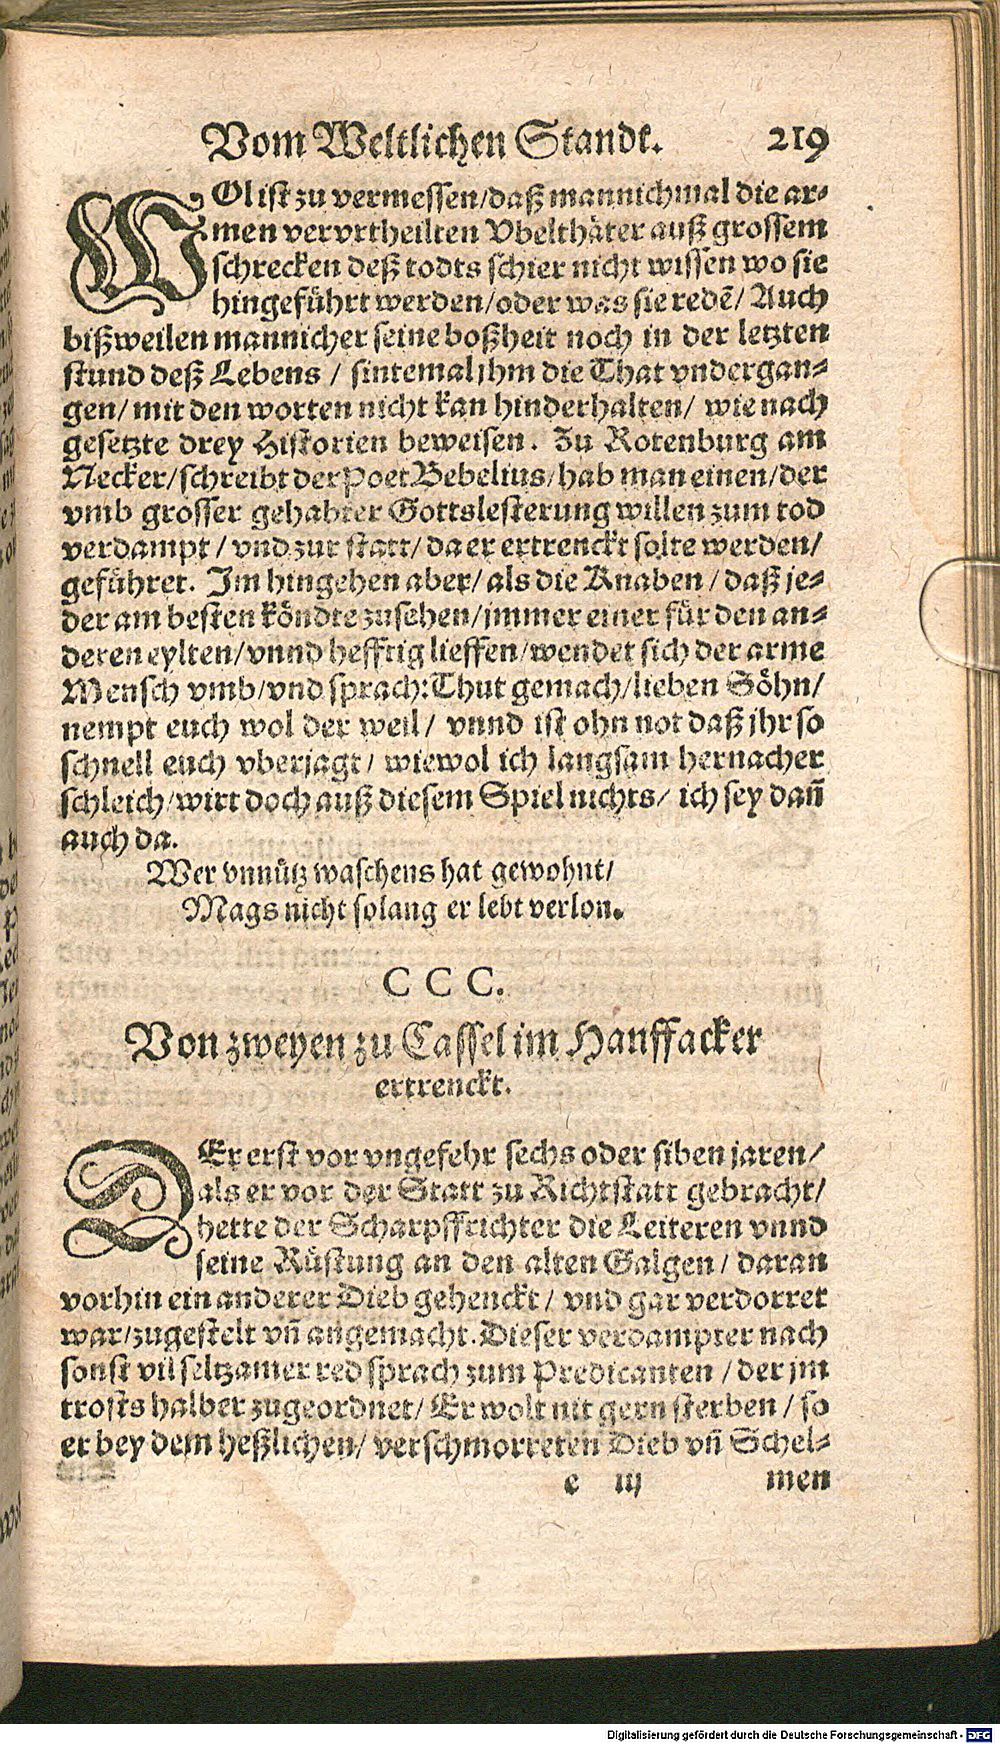 Vom Weltlichen Standt. 219
WOl ist zu vermessen/daß mannichmal die ar⸗
men vervrtheilten Vbelthäter auß grossem
schrecken deß todts schier nicht wissen wo sie
hingeführt werden/oder was sie redē/ Auch
bißweilen mannicher seine boßheit noch in der letzten
stund deß Lebens / sintemal jhm die That vndergan⸗
gen/ mit den worten nicht kan hinderhalten/ wie nach
gesetzte drey Historien beweisen. Zu Rotenburg am
Necker/schreibt der Poet Bebelius/hab man einen/der
vmb grosser gehabter Gottslesterung willen zum tod
verdampt / vnd zur statt/ da er ertrenckt solte werden/
geführet. Im hingehen aber/ als die Knaben / daß je⸗
der am besten köndte zusehen/jmmer einer für den an⸗
deren eylten/vnnd hefftig lieffen/wendet sich der arme
Mensch vmb/vnd sprach:Thut gemach/lieben Söhn/
nempt euch wol der weil/ vnnd ist ohn not daß jhr so
schnell euch vberjagt/ wiewol ich langsam hernacher
schleich/wirt doch auß diesem Spiel nichts/ ich sey dañ
auch da.
Wer vnnütz waschens hat gewohnt/
Mags nicht solang er lebt verlon.
C C C.
Von zweyen zu Cassel im Hanffacker
ertrenckt.
DEr erst vor vngefehr sechs oder siben jaren/
als er vor der Statt zu Richtstatt gebracht/
hette der Scharpffrichter die Leiteren vnnd
seine Rüstung an den alten Galgen / daran
vorhin ein anderer Dieb gehenckt / vnd gar verdorret
war/zugestelt vñ angemacht. Dieser verdampter nach
sonst vil seltzamer red sprach zum Predicanten / der jm
trosts halber zugeordnet/ Er wolt nit gern sterben / so
er bey dem heßlichen/ verschmorreten Dieb vñ Schel⸗
e iij men
Digitalisierung gefördert durch die Deutsche Forschungsgemeinschaft - DFG